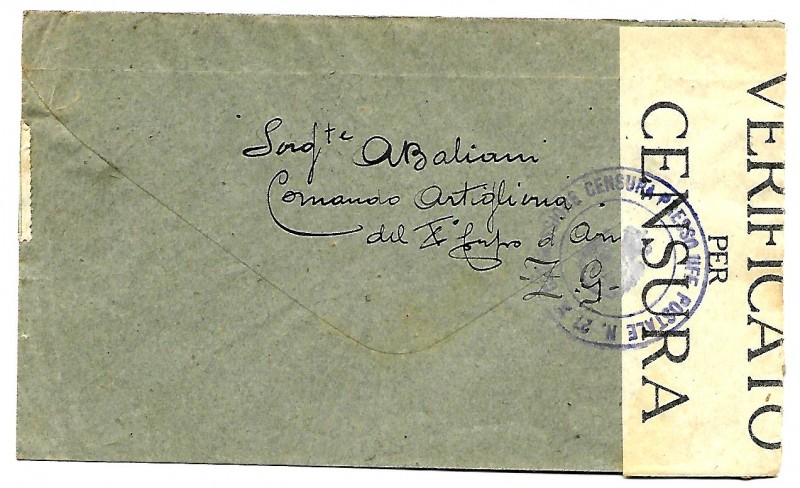 Serg^te A Baliani
Comando Artiglieria
del X° Corpo d'Ar
Z.G.
CENSURA PRESSO UFF. POSTALE N. 27
VERIFICATO
PER
CENSURA